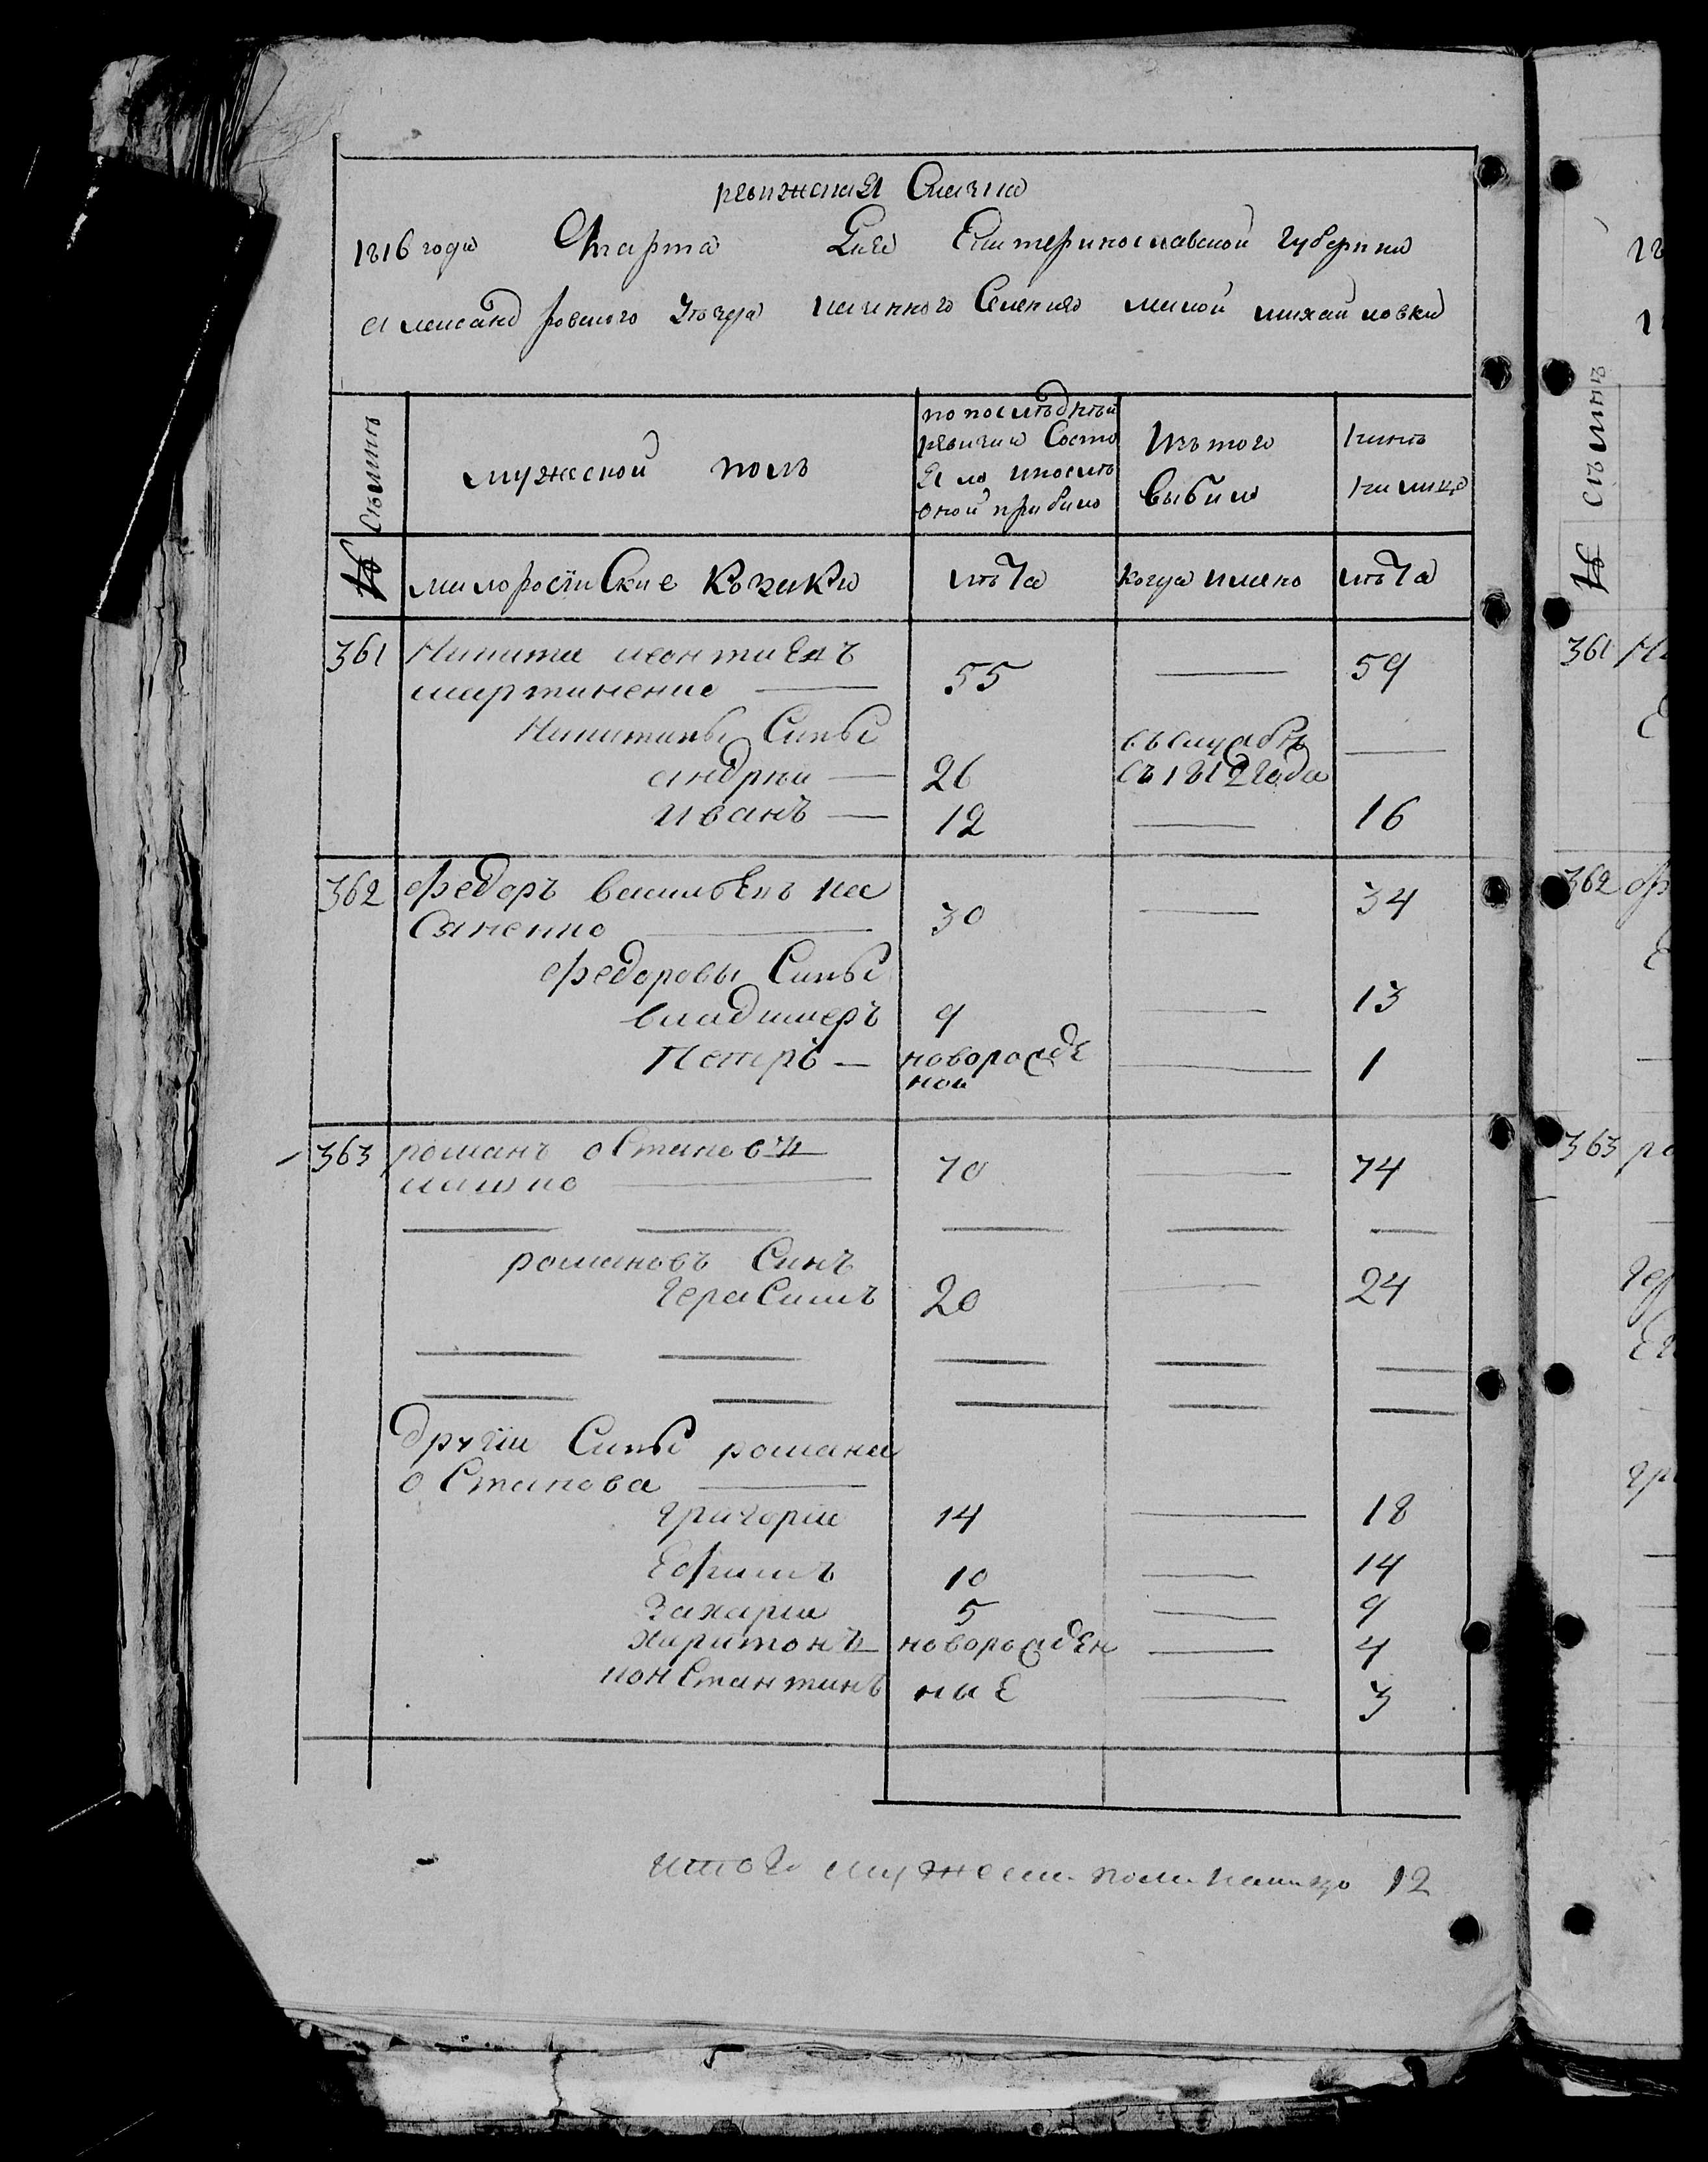 ревижская Сказка
1816 года Марта Дня Екатеринославской губернии
александровского уезда казенного Селения малой михайловки
Семьи
мужеской полъ
по последней
ревизии Состо
Яло ипосле
оной прибыло
Изъ того
выбыло
ныне
на лицо
№
малоросiйСкие Козаки
лета
когда имено
лета
361
Никита леонтиЕвъ
мартиненко
55
59
Никитины Сины
андрей
26
въ службе
Съ 1812 года
Иванъ
12
16
362
Федоръ васильЕвъ ка
Сяненко
30
34
Федоровы Сины
владимеръ
9
13
Петръ
новорождЕ
ной
1
363
романъ оСтаповъ
70
74
романовъ Синъ
гераСимъ
20
24
другiи Сины романа
оСтапова
григорiи
14
18
Ефимъ
10
14
Захарiи
5
9
харитонъ
новорождЕн
4
конСтантинъ
ныЕ
3
итого мужеск. пола налицо 12
Семьи
№
361
362
363